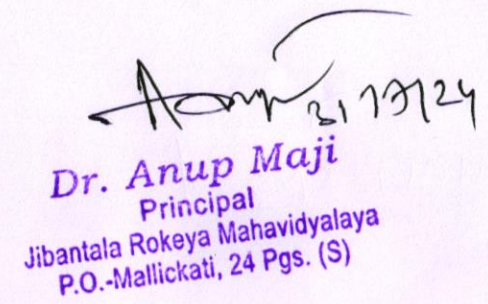 Anup 31/7/24
Dr. Anup Maji
Principal
Jibantala Rokeya Mahavidyalaya
P.O.-Mallickati, 24 Pgs. (S)